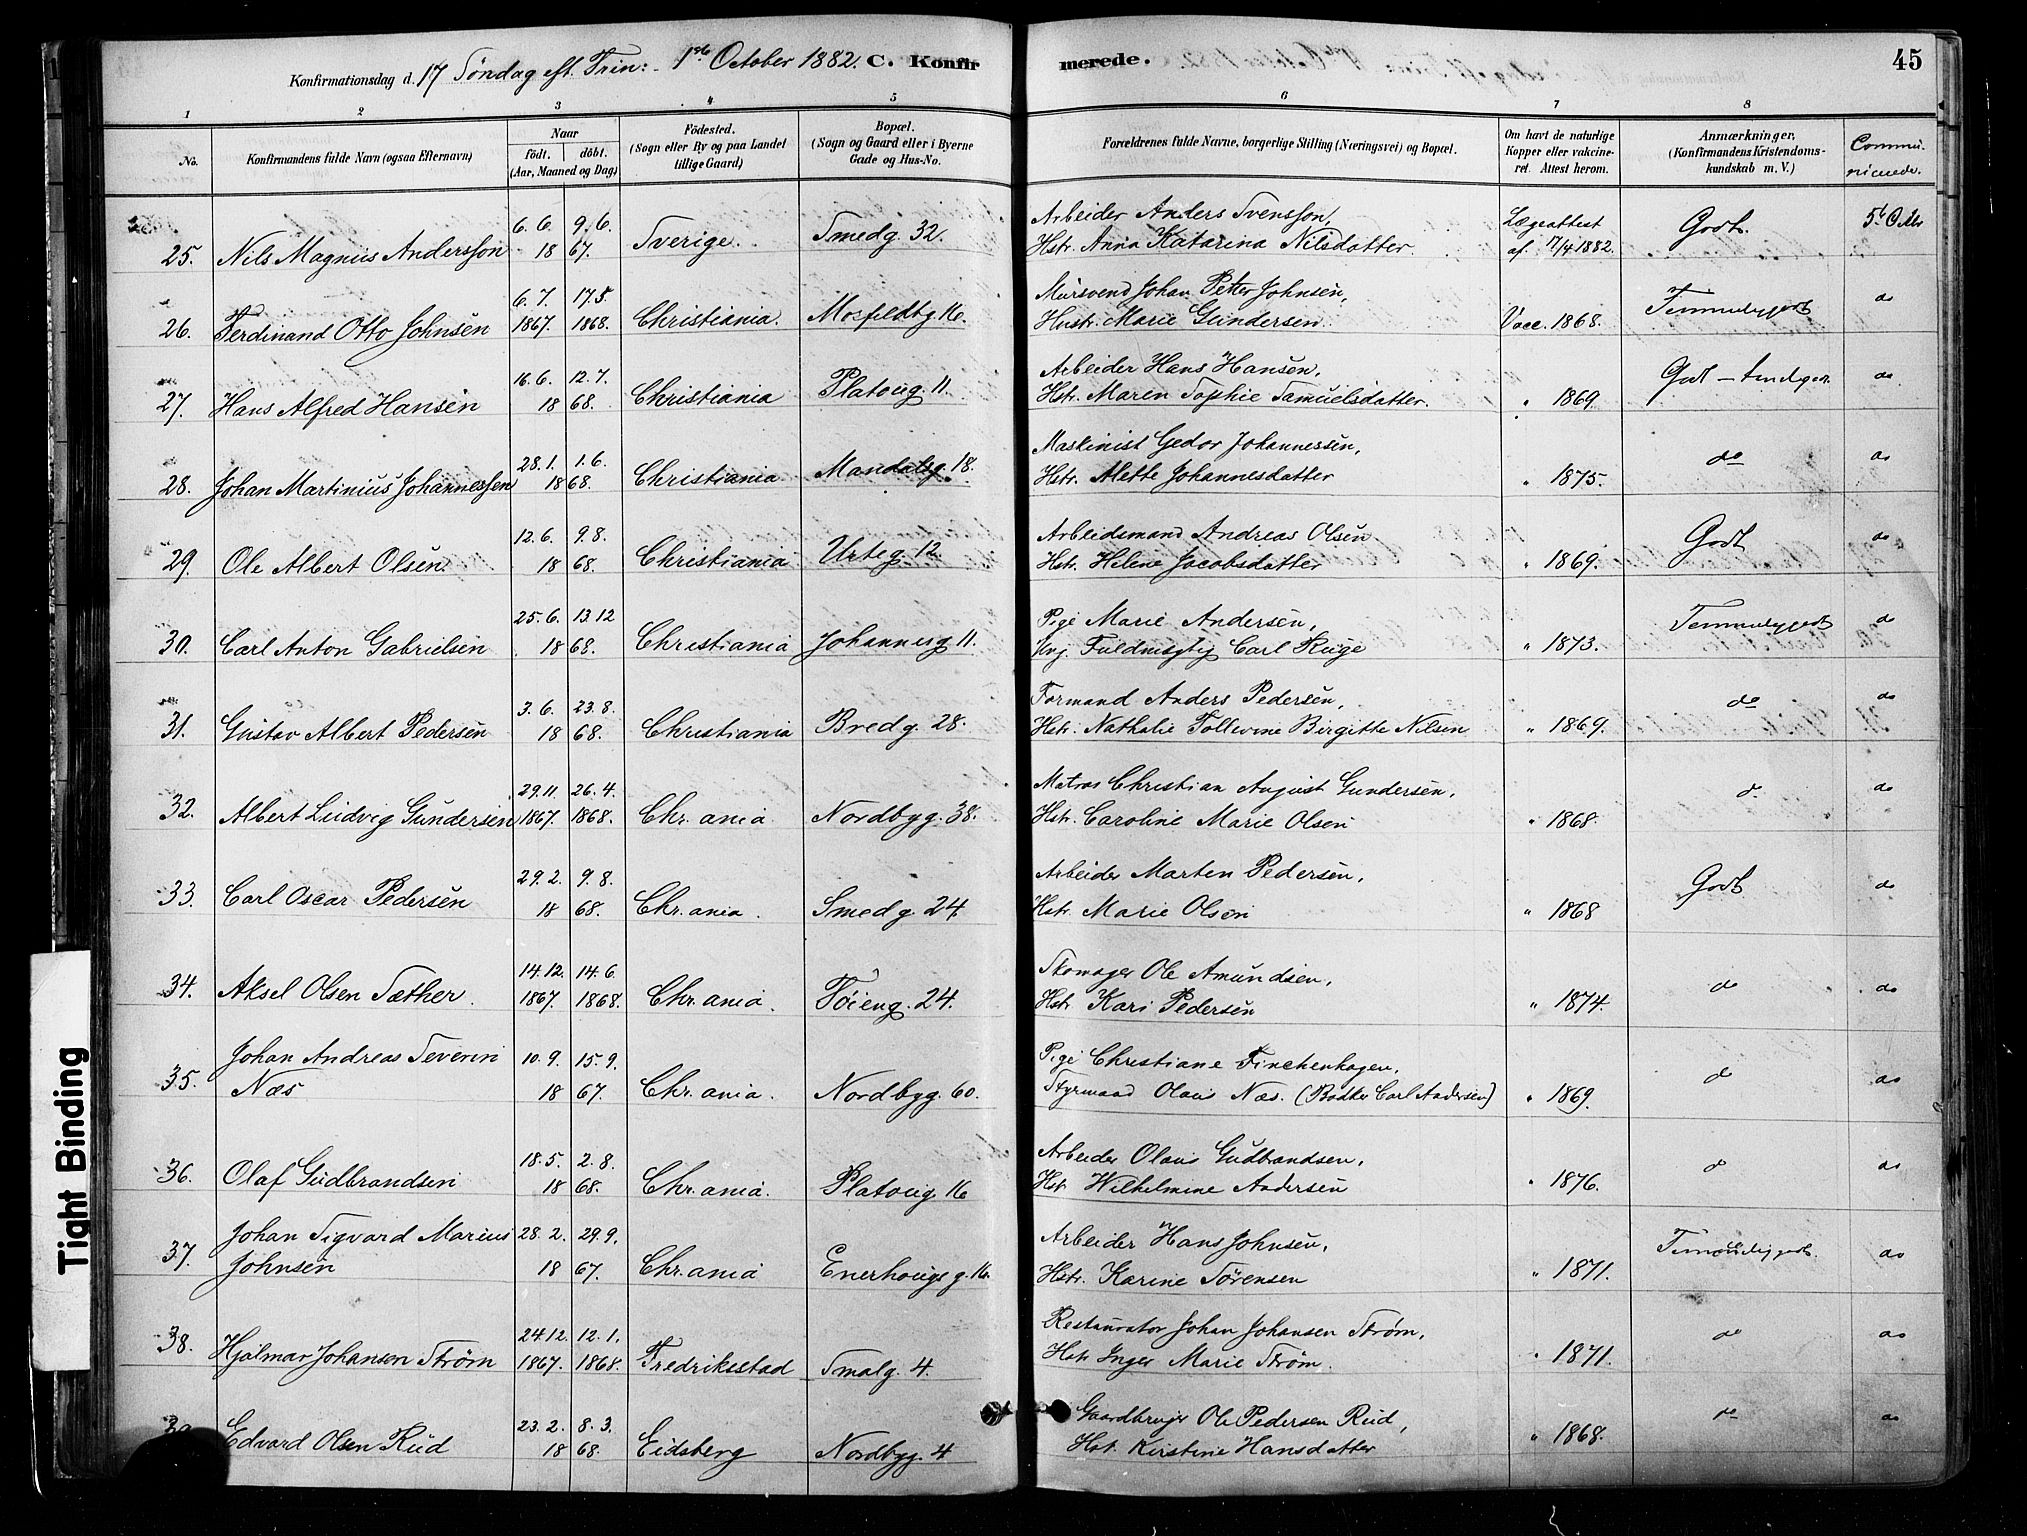 Konfirmationsdag d. 17 Söndag eft. Trin: 1ste October 1882. C. Konfirmerede. 45
1 2 3 4 5 6 7 8
No. Konfirmandens fulde Navn (ogsaa Efternavn) Naar födt. döbt. (Aar, Maaned og Dag) Födested. (Sogn eller By og paa Landet tillige Gaard) Bopæl. (Sogn og Gaard eller i Byerne Gade og Hus-No. Forældrenes fulde Navne, borgerlige Stilling (Næringsvei) og Bopæl. Om havt de naturlige Kopper eller vakcineret. Attest herom. Anmærkninger, (Konfirmandens Kristendomskundskab m. V.) Communicerede.
25. Nils Magnus Andersson 6. 6. 9. 6. 18 67. Sverige. Smedg. 32. Arbeider Anders Svensson,
Hstr. Anna Katarina Nilsdatter. Lægeattest af 17/4 1882. Godt. 5te Octbr
26. Ferdinand Otto Johnsen 6. 7. 1867. 17.5. 1868. Christiania. Mosfeldtg. 16. Mursvend Johan Petter Johnsen,
Hustr. Marie Gundersen. Vacc. 1868. Temmeliggodt do
27. Hans Alfred Hansen 16. 6. 12. 7. 18 68. Christiania Platoug. 11. Arbeider Hans Hansen,
Hstr. Maren Sophie Samuelsdatter. " 1869. do
28. Johan Martinius Johannessen 28. 1. 1. 6. 18 68. Christiania Mandalsg. 18. Maskinist Gedor Johannessen,
Hstr. Alette Johannesdatter " 1875. do do
29. Ole Albert Olsen 12. 6. 9. 8. 18 68. Christiania Urteg. 12. Arbeidsmand Andreas Olsen
Hstr. Helene Jacobsdatter " 1869. Godt do
30. Carl Anton Gabrielsen 25. 6. 13. 12 18 68. Christiania Johannesg 11. Pige Marie Andersen,
Ung. Fuldmægtig Carl Ruge " 1873. Temmeliggodt do
31. Gustav Albert Pedersen 3. 6. 23. 8. 18 68. Christiania Bredg. 28. Formand Anders Pedersen,
Hstr. Nathalie Birgitte Nilsen " 1869. do do
32. Albert Ludvig Gundersen 29. 11. 1867. 26. 4. 1868. Chr.ania Nordbyg. 38. Matros Christian August Gundersen,
Hstr. Caroline Marie Olsen " 1868. do do
33. Carl Oscar Pedersen 29. 2. 9. 8. 18 68. Chr.ania. Smedg. 24. Arbeider Marten Pedersen,
Hstr. Marie Olsen " 1868 Godt do
34. Aksel Olsen Sæther. 14. 12. 1867. 14. 6 1868. Chr.ania. Töieng. 24. Skomager Ole Amundsen,
Hstr. Kari Pedersen " 1874. do do
35. Johan Andreas Severin Næs 10. 9. 15. 9. 18 67. Chr.ania. Nordbyg. 60. Pige Christiane Finchenhagen,
Styrmand Olaus Næs. (Bödker Carl Andersen) " 1869. do do
36. Olaf Gudbrandsen 18. 5. 2. 8. 18 68. Chr.ania. Platoug. 16 Arbeider Olaus Gudbrandsen,
Hst. Wilhelmine Andersen " 1876. do do
37. Johan Sigvard Marius Johnsen 28. 2. 29. 9. 18 67. Chr.ania Enerhougs g. 16. Arbeider Hans Johnsen,
Hstr. Karine Sørensen " 1871. Temmeliggodt. do
38. Hjalmar Johansen Strøm 24. 12. 1867. 12. 1. 1868. Fredriksstad Smalg. 4. Restaurator Johan Johansen Strøm,
Hstr. Inger Marie Strøm. " 1871. do do
39. Edvard Olsen Rud 23. 2. 8. 3. 18 68. Eidsberg Nordbyg. 4 Gaardbruger Ole Pedersen Rud,
Hst. Kirstine Hansdatter " 1868. do do
Tight Binding